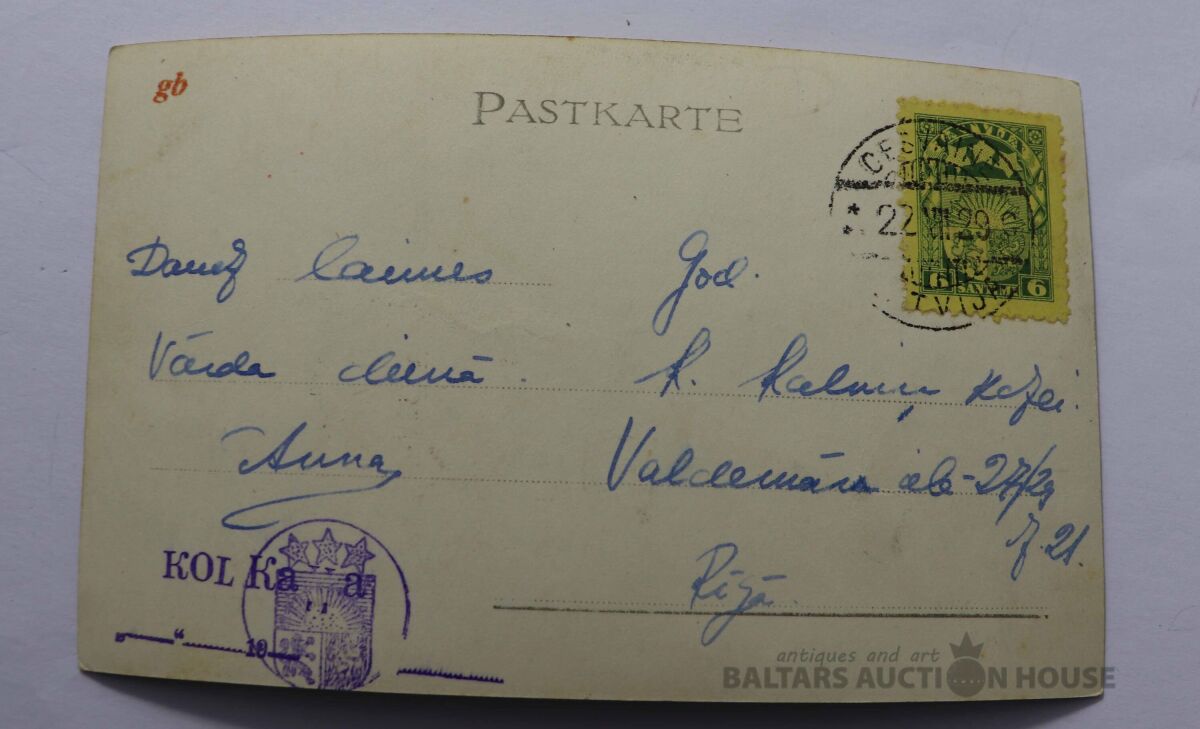 gb
PASTKARTE
LATVIJA
22 VII 29
6 SANTIMI 6
Daudz laimes
Vārda dienā.
Anna
God.
K. Kalniņ kdzei.
Valdemāra iela 27/29
dz 21.
Rīgā.
KOLKa a
„ “ 19
antiques and art
BALTARS AUCTION HOUSE